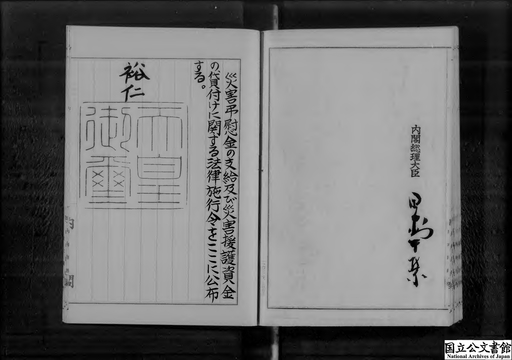 内閣総理大臣
田中角榮
災害弔慰金の支給及び災害援護資金
の貸付けに関する法律施行令をここに公布
する。
裕仁
天皇
御璽
国立公文書館
National Archives of Japan